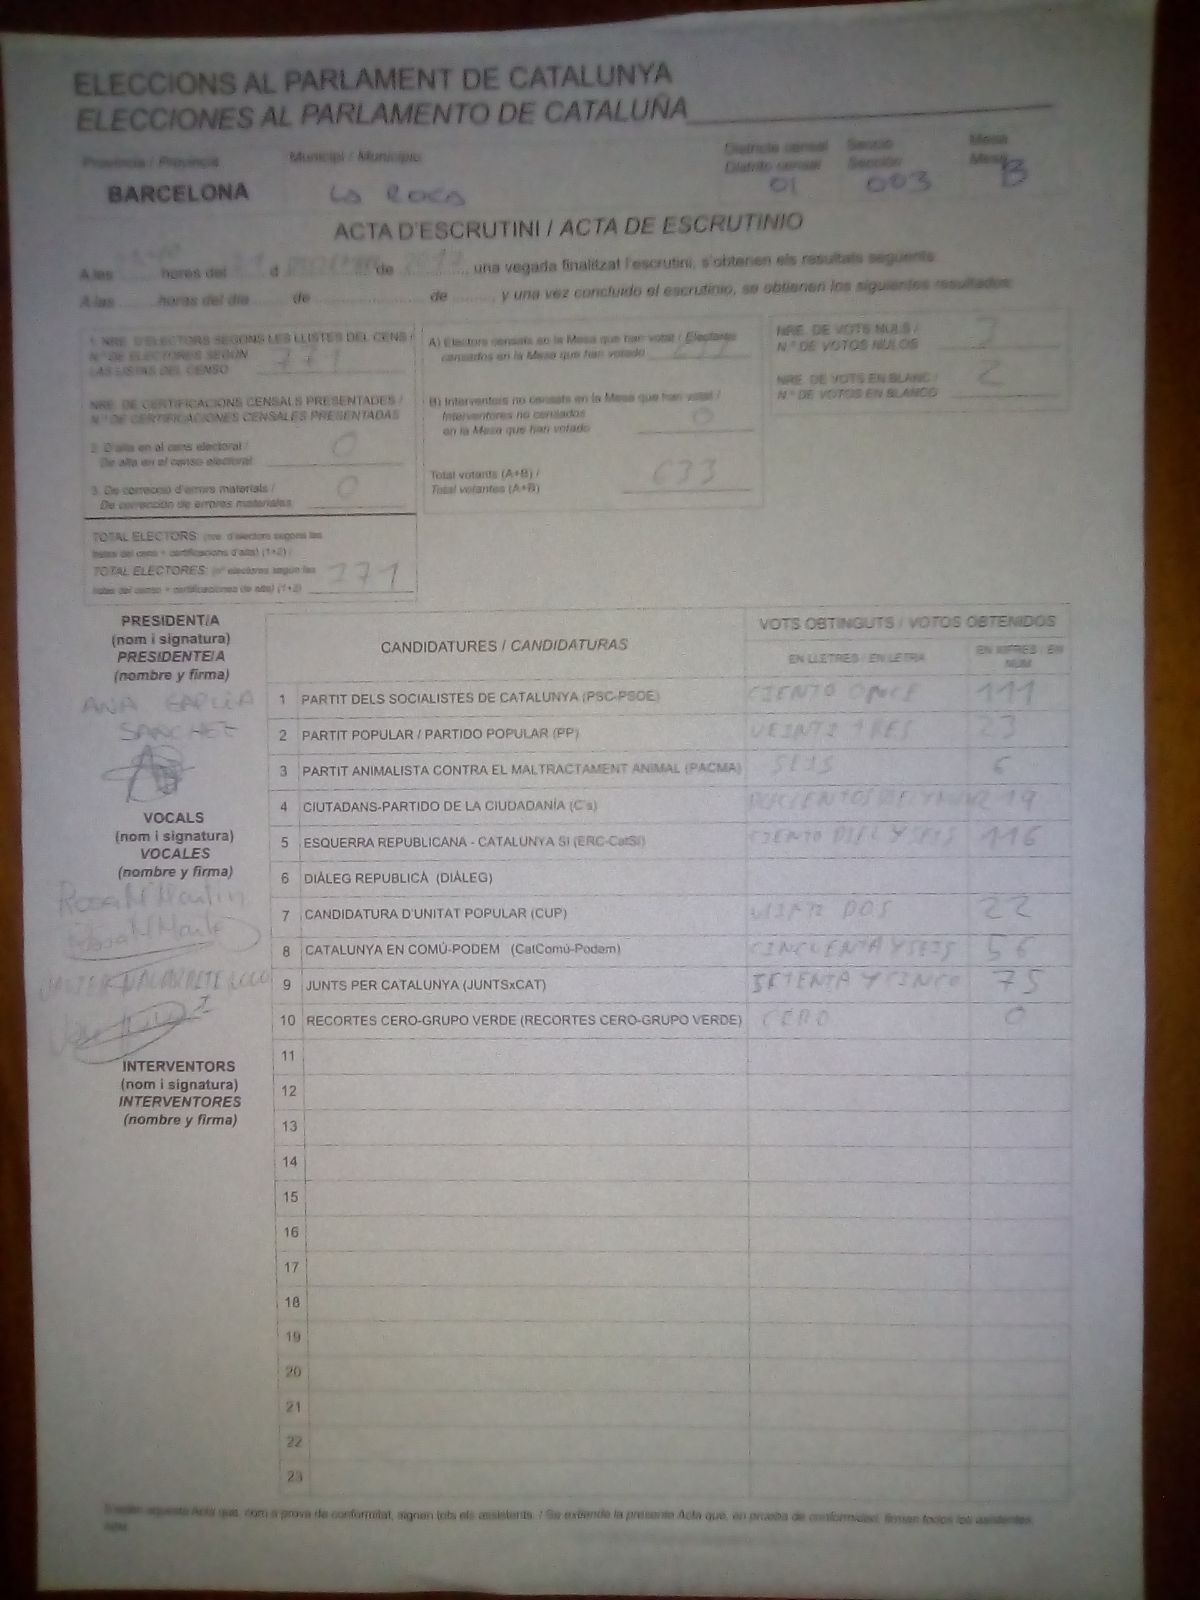 ELECCIONS AL PARLAMENT DE CATALUNYA
ELECCIONES AL PARLAMENTO DE CATALUÑA
Província / Provincia
Municipi / Municipio
Districte censal
Distrito censal
Secció
Sección
Mesa
Mesa
BARCELONA
LA ROCA
01
003
B
ACTA D'ESCRUTINI / ACTA DE ESCRUTINIO
A les hores del d de 2017 una vegada finalitzat l'escrutini, s'obtenen els resultats següents:
A las horas del día de de , y una vez concluido el escrutinio, se obtienen los siguientes resultados:
1. NRE. D'ELECTORS SEGONS LES LLISTES DEL CENS /
N.º DE ELECTORES SEGÚN
LAS LISTAS DEL CENSO 771
NRE. DE CERTIFICACIONS CENSALS PRESENTADES /
N.º DE CERTIFICACIONES CENSALES PRESENTADAS
2. D'alta en el cens electoral /
De alta en el censo electoral 0
3. De correcció d'errors materials /
De corrección de errores materiales 0
TOTAL ELECTORS: (nre. d'electors segons les
llistes del cens + certificacions d'alta) (1+2) /
TOTAL ELECTORES: (nº electores según las
listas del censo + certificaciones de alta) (1+2) 771
A) Electors censats en la Mesa que han votat / Electores
censados en la Mesa que han votado
B) Interventors no censats en la Mesa que han votat /
Interventores no censados
en la Mesa que han votado 0
Total votants (A+B) /
Total votantes (A+B) 633
NRE. DE VOTS NULS /
N.º DE VOTOS NULOS
NRE. DE VOTS EN BLANC /
N.º DE VOTOS EN BLANCO 2
PRESIDENT/A
(nom i signatura)
PRESIDENTE/A
(nombre y firma)
ANA GARCIA
SANCHEZ
VOCALS
(nom i signatura)
VOCALES
(nombre y firma)
Rosa Mª Martin
INTERVENTORS
(nom i signatura)
INTERVENTORES
(nombre y firma)
CANDIDATURES / CANDIDATURAS
VOTS OBTINGUTS / VOTOS OBTENIDOS
EN LLETRES / EN LETRA
EN XIFRES / EN NÚM.
1 PARTIT DELS SOCIALISTES DE CATALUNYA (PSC-PSOE) CIENTO ONCE 111
2 PARTIT POPULAR / PARTIDO POPULAR (PP) VEINTI TRES 23
3 PARTIT ANIMALISTA CONTRA EL MALTRACTAMENT ANIMAL (PACMA) SEIS 6
4 CIUTADANS-PARTIDO DE LA CIUDADANÍA (C's) 19
5 ESQUERRA REPUBLICANA - CATALUNYA SÍ (ERC-CatSí) CIENTO DIEZ Y SEIS 116
6 DIÀLEG REPUBLICÀ (DIÀLEG)
7 CANDIDATURA D'UNITAT POPULAR (CUP) DOS 22
8 CATALUNYA EN COMÚ-PODEM (CatComú-Podem) CINCUENTA Y SEIS 56
9 JUNTS PER CATALUNYA (JUNTSxCAT) SETENTA Y CINCO 75
10 RECORTES CERO-GRUPO VERDE (RECORTES CERO-GRUPO VERDE) CERO 0
11
12
13
14
15
16
17
18
19
20
21
22
23
aquesta Acta que, com a prova de conformitat, signen tots els assistents. / Se extiende la presente Acta que, en prueba de conformidad, firman todos los asistentes.